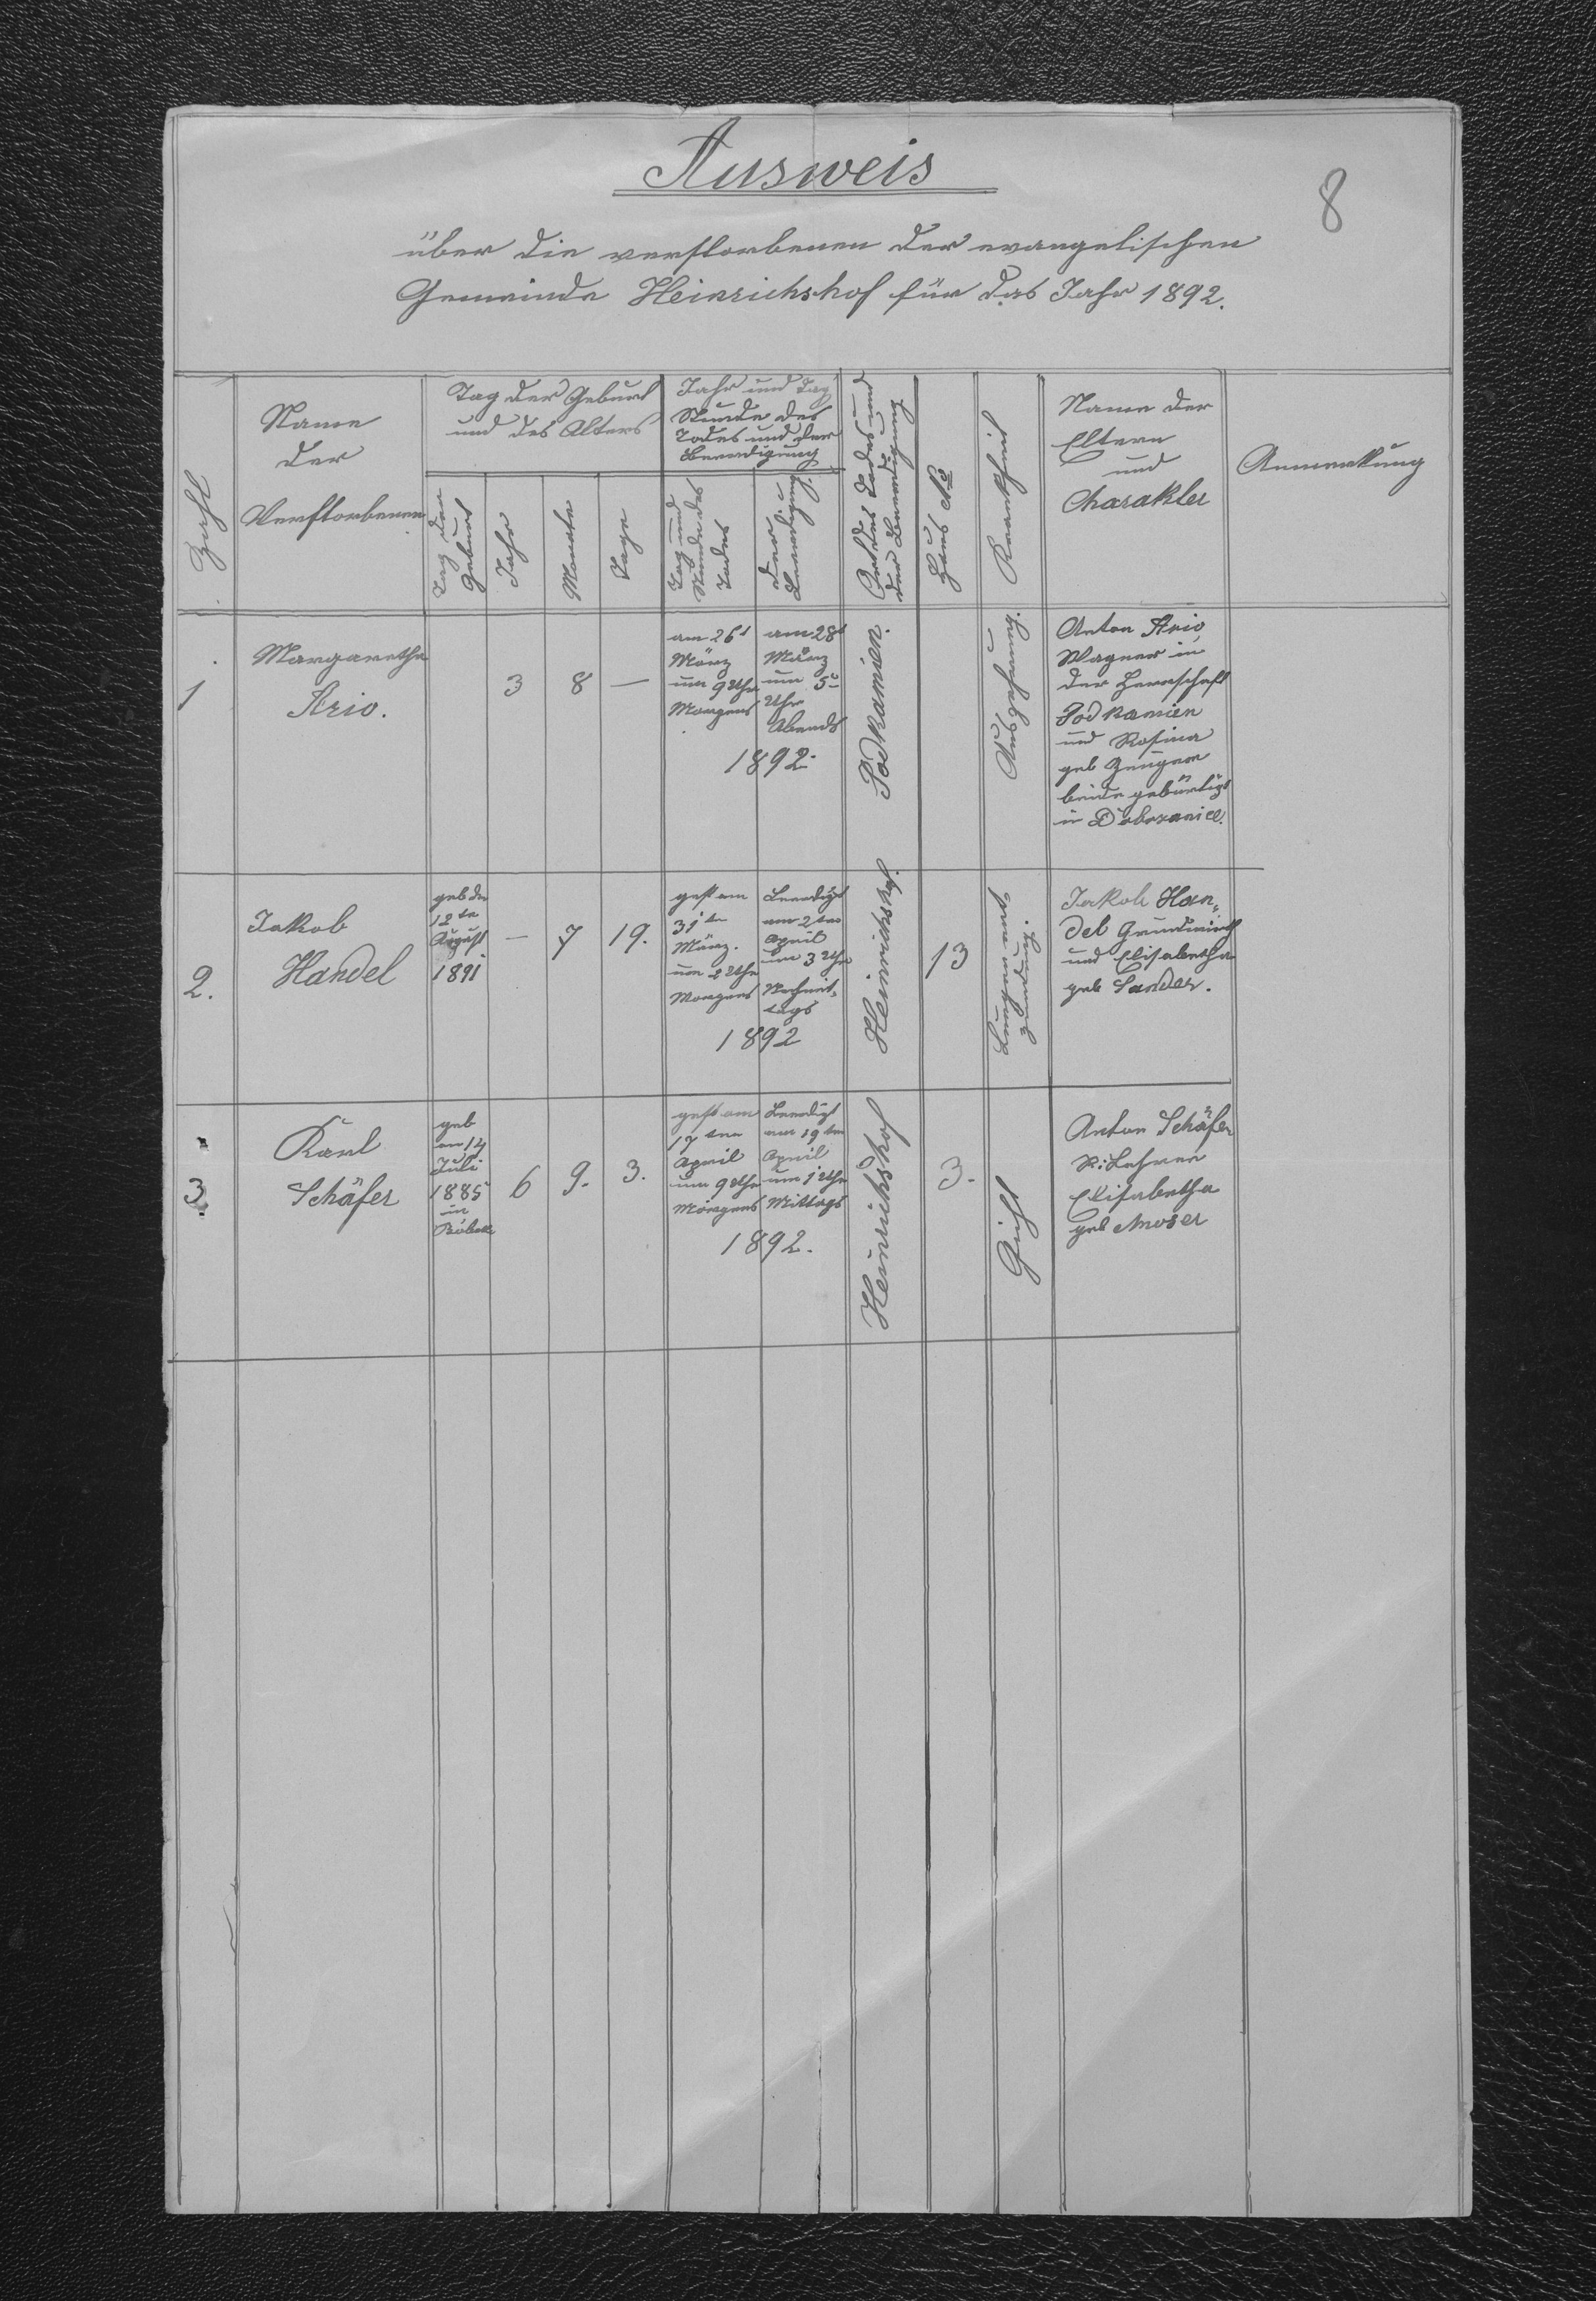 Ausweis
8
über die verstorbenen der evangelischen
Gemeinde Heinrichshof für das Jahr 1892.
Zahl
Name
der
Verstorbenen
Tag der Geburt
und des Alters
Tag der
Geburt
Jahr
Monate
Tage
Jahr und Tag
Stunde des
Todes und der
Beerdigung
Tag und
Stunde des
Todes
der
Beerdigung
Ort des Todes und
der Beerdigung
Haus No
Krankheit
Name der
Eltern
und
Charakter
Anmerkung
1
Margaretha
Ario.
3
8
—
am 26t
März
um 9 Uhr
Morgens
am 28t
März
um 5
Uhr
Abends
1892.
Podkamien.
Auszehrung.
Anton Ario
Wagner in
der Herrschaft
Podkamien
und Rosina
geb
beide gebürtig
in
2.
Jakob
Handel
geb den
12ten
August
1891
—
7
19.
gest am
31ten
März.
um 2 Uhr
Morgens
Beerdigt
am 2ten
April
um 3 Uhr
Nachmit-
tags
1892
Heinrichshof.
13
Lungenent
zündung.
Jakob Han-
del Grundwirth
und Elisabetha
geb Sander.
3
Karl
Schäfer
geb
am 14
Juli
1885
in
6
9.
3.
gest am
17ten
April
um 9 Uhr
Morgens
Beerdigt
am 19ten
April
um 1 Uhr
Mittags
1892.
Heinrichshof
3.
Gicht
Anton Schäfer
Lehrer
Elisabetha
geb Moser